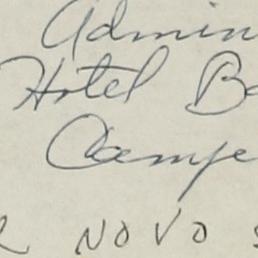 Admin
Hotel B
Campe
R NOVO S